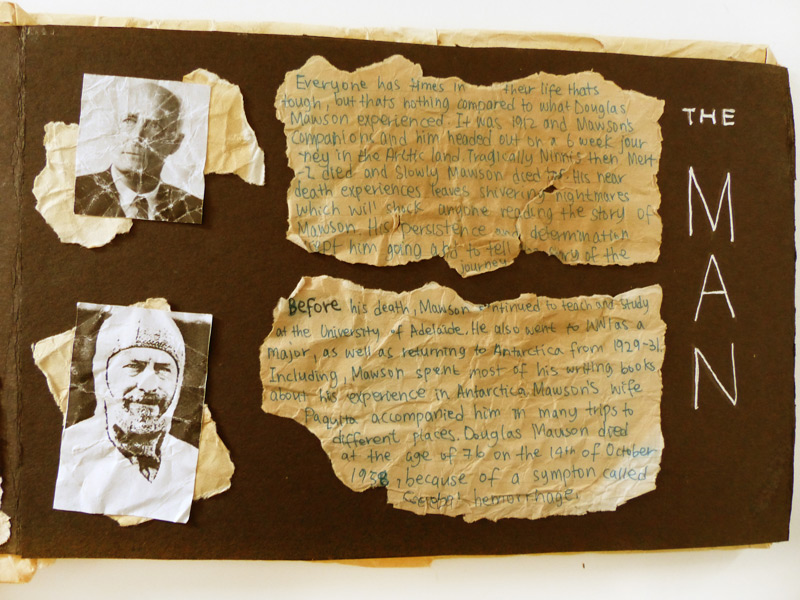 Everyone has times in their life thats
tough, but thats nothing compared to what Douglas
Mawson experienced. It was 1912 and Mawson's
companions and him headed out on a 6 week jour
-ney in the Arctic land. Tragically Ninnis then Mert
-z died and Slowly Mawson died too. His near
death experiences leaves shivering nightmares
which will shock anyone reading the story of
Mawson. His persistence and determination
kept him going to tell story of the
journey
Before his death, Mawson continued to teach and study
at the University of Adelaide. He also went to WW1 as a
Major, as well as returning to Antarctica from 1929-31.
Including, Mawson spent most of his writing books
about his experience in Antarctica. Mawson's wife
Paquita accompanied him in many trips to
different places. Douglas Mawson died
at the age of 76 on the 14th of October
1938, because of a sympton called
hemorrhage.
THE
MAN